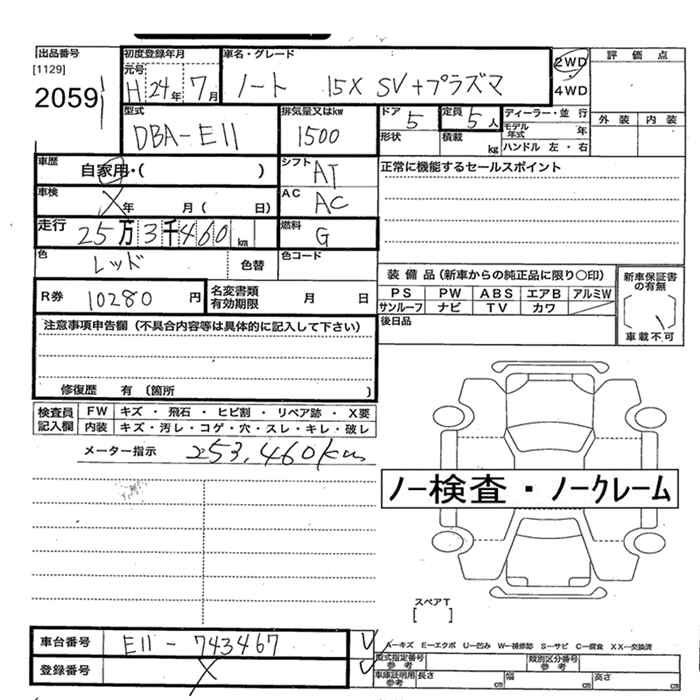 出品番号
[1129]
2059
初度登録年月
元号
H 24年 7月
車名・グレード
ノート 15X SV+プラズマ
2WD
4WD
評価点
外装 内装
型式
DBA-E11
排気量又はkw
1500
ドア
5
形状
定員
5人
積載
kg
ディーラー・並行
モデル年式 年
ハンドル 左・右
車歴
自家用・( )
シフト
AT
正常に機能するセールスポイント
車検
X年 月( 日)
AC
AC
走行
25万3千460km
燃料
G
色
レッド
色替
色コード
R券 10280 円
名変書類有効期限 月 日
装備品(新車からの純正品に限り〇印)
PS PW ABS エアB アルミW
サンルーフ ナビ TV カワ
後日品
新車保証書の有無
車載不可
注意事項申告欄(不具合内容等は具体的に記入して下さい)
修復歴 有〔箇所 〕
検査員記入欄
FW キズ・飛石・ヒビ割・リペア跡・X要
内装 キズ・汚レ・コゲ・穴・スレ・キレ・破レ
メーター指示 253,460km
ノー検査・ノークレーム
スペアT
[ ]
車台番号 E11-743467
登録番号 X
A-キズ E-エクボ U-凹み W-補修跡 S-サビ C-腐食 XX-交換済
型式指定番号参考
類別区分番号参考
車庫証明用参考
長さ cm 幅 cm 高さ cm